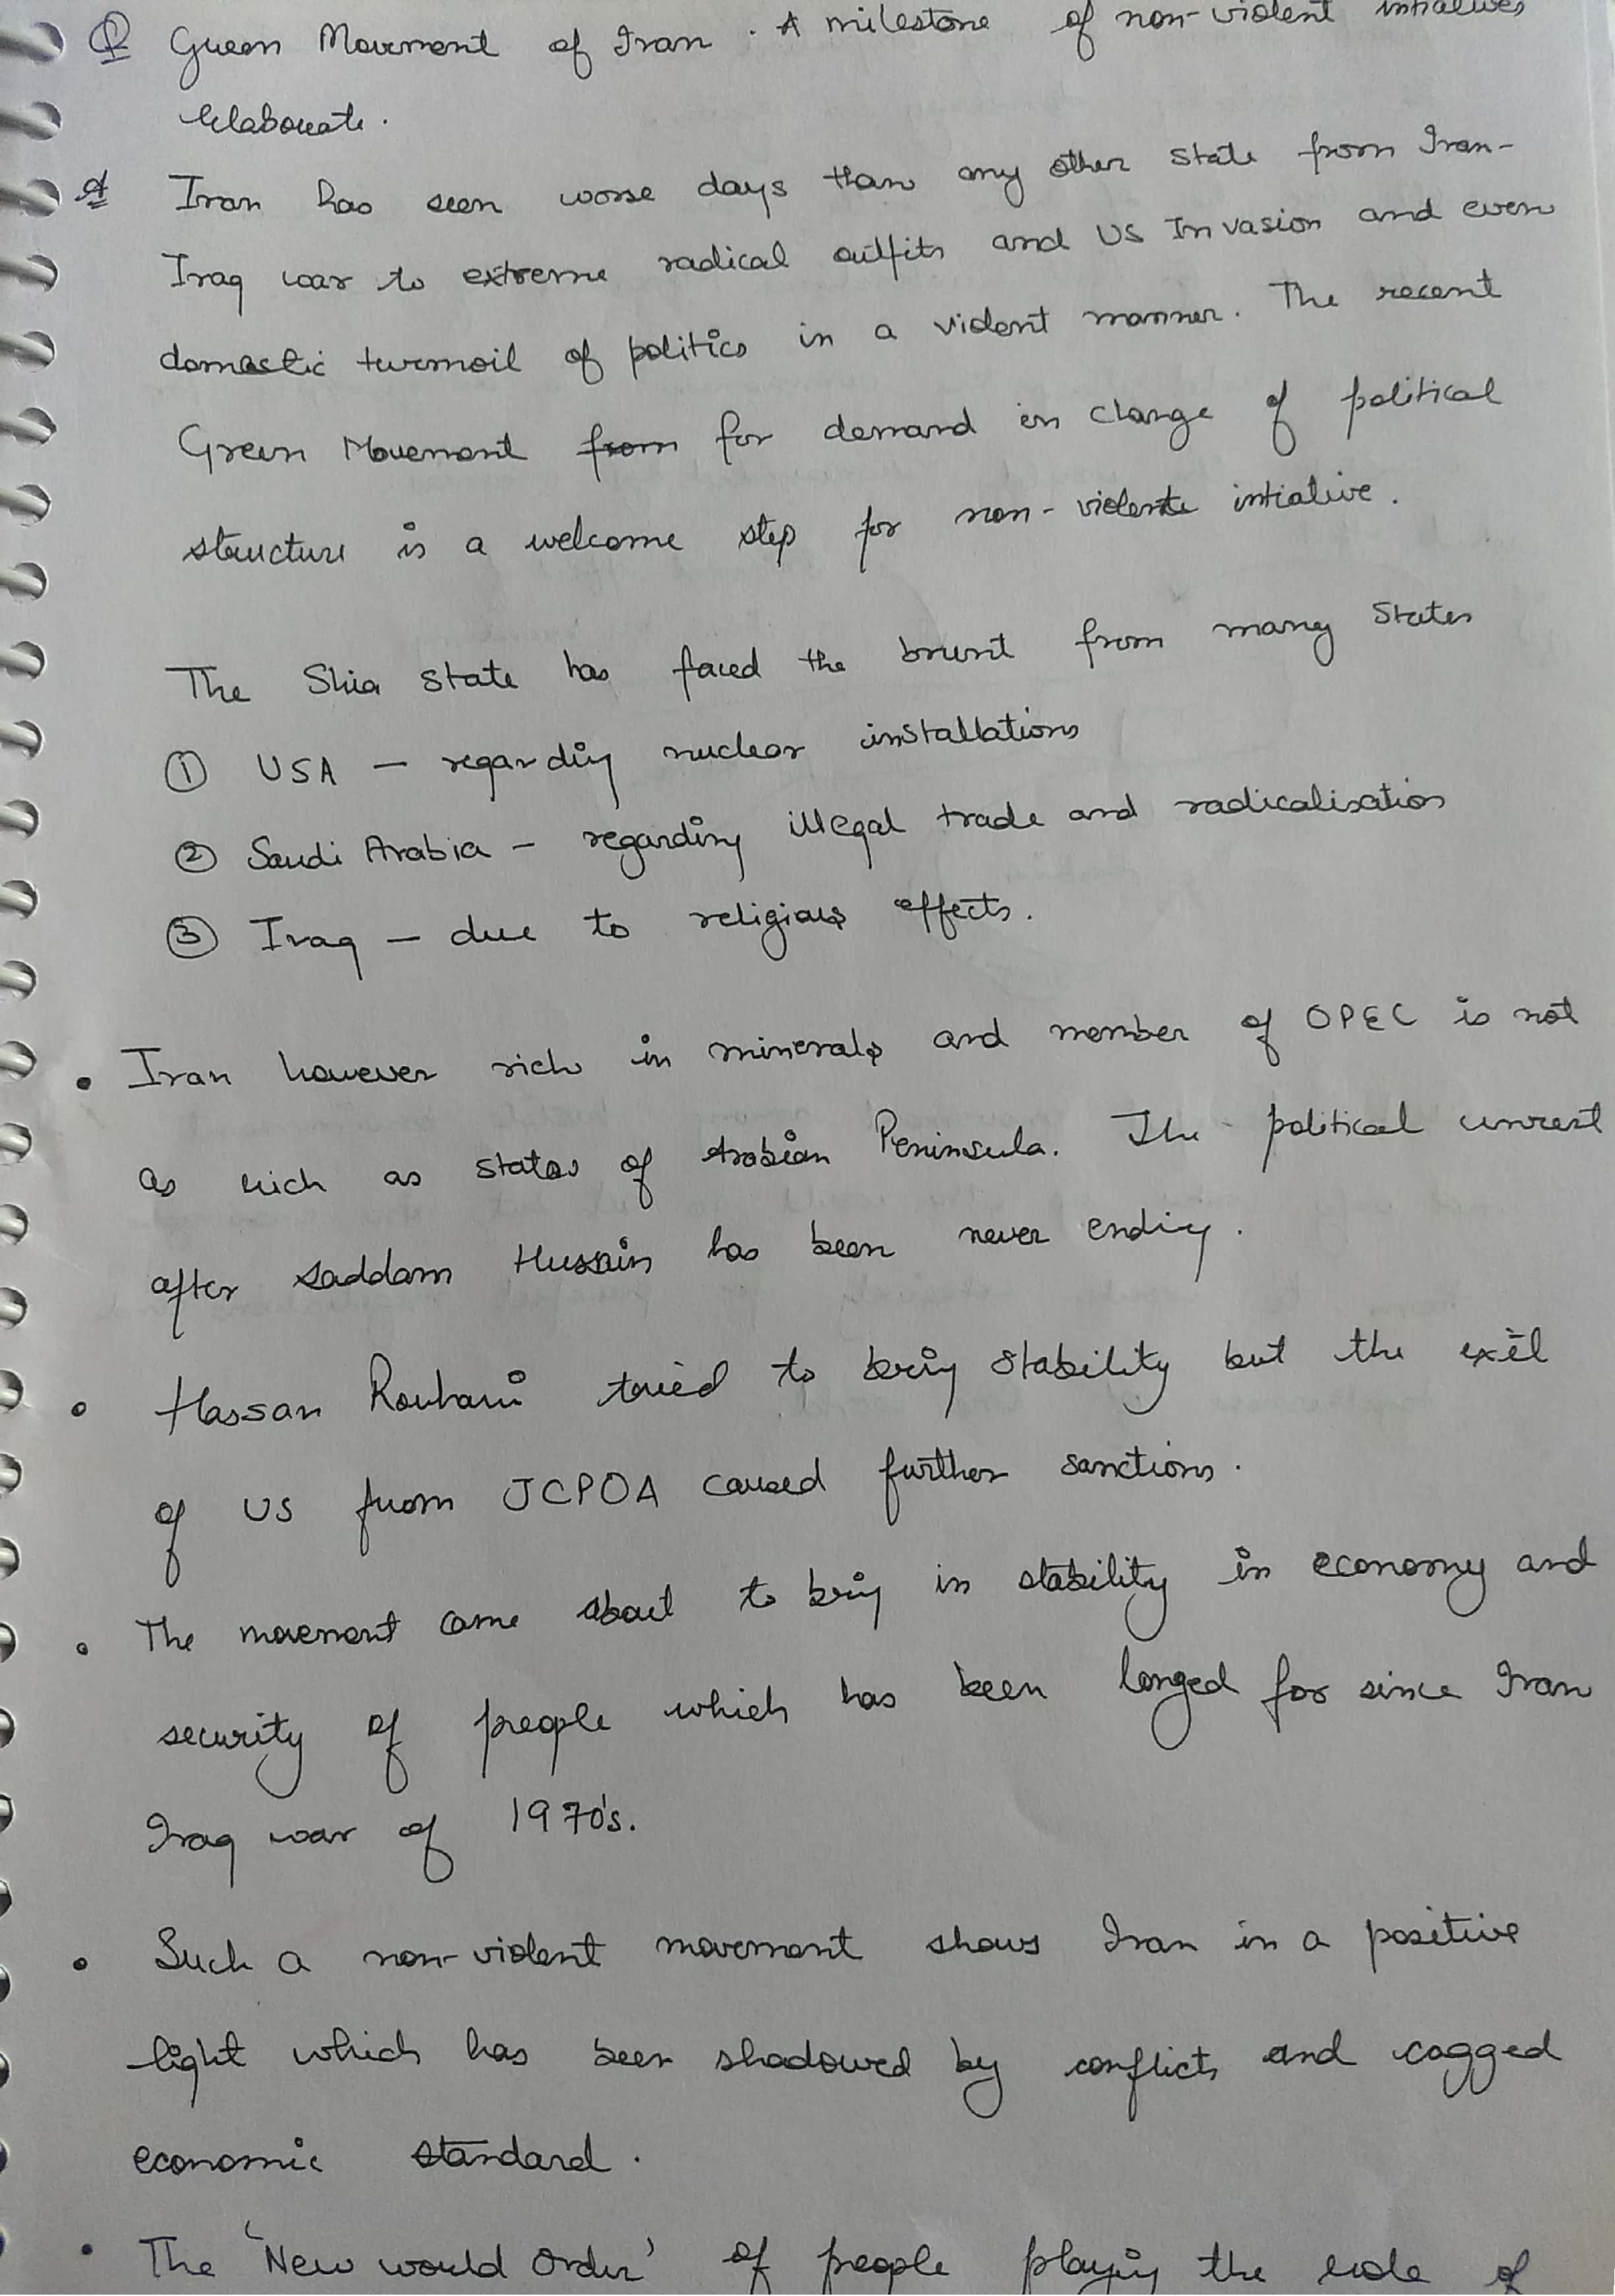 Q Green Movement of Iran. A milestone of non-violent intiatives
Elaborate.
A Iran has seen worse days than any other state from Iran-
Iraq war to extreme radical outfits and US Invasion and even
domestic turmoil of politics in a violent manner. The recent
Green Movement from for demand in change of political
structure is a welcome step for non-violente intiative.
The Shia state has faced the brunt from many States
① USA — regarding nuclear installations
② Saudi Arabia — regarding illegal trade and radicalisation
③ Iraq — due to religious effects.
• Iran however rich in minerals and member of OPEC is not
as rich as states of Arabian Peninsula. The political unrest
after Saddam Hussain has been never ending.
• Hassan Rouhani tried to bring stability but the exit
of US from JCPOA caused further sanctions.
• The movement came about to bring in stability in economy and
security of people which has been longed for since Iran
Iraq war of 1970's.
• Such a non-violent movement shows Iran in a positive
light which has been shadowed by conflicts and cagged
economic standard.
• The 'New would Order' of people playing the role of